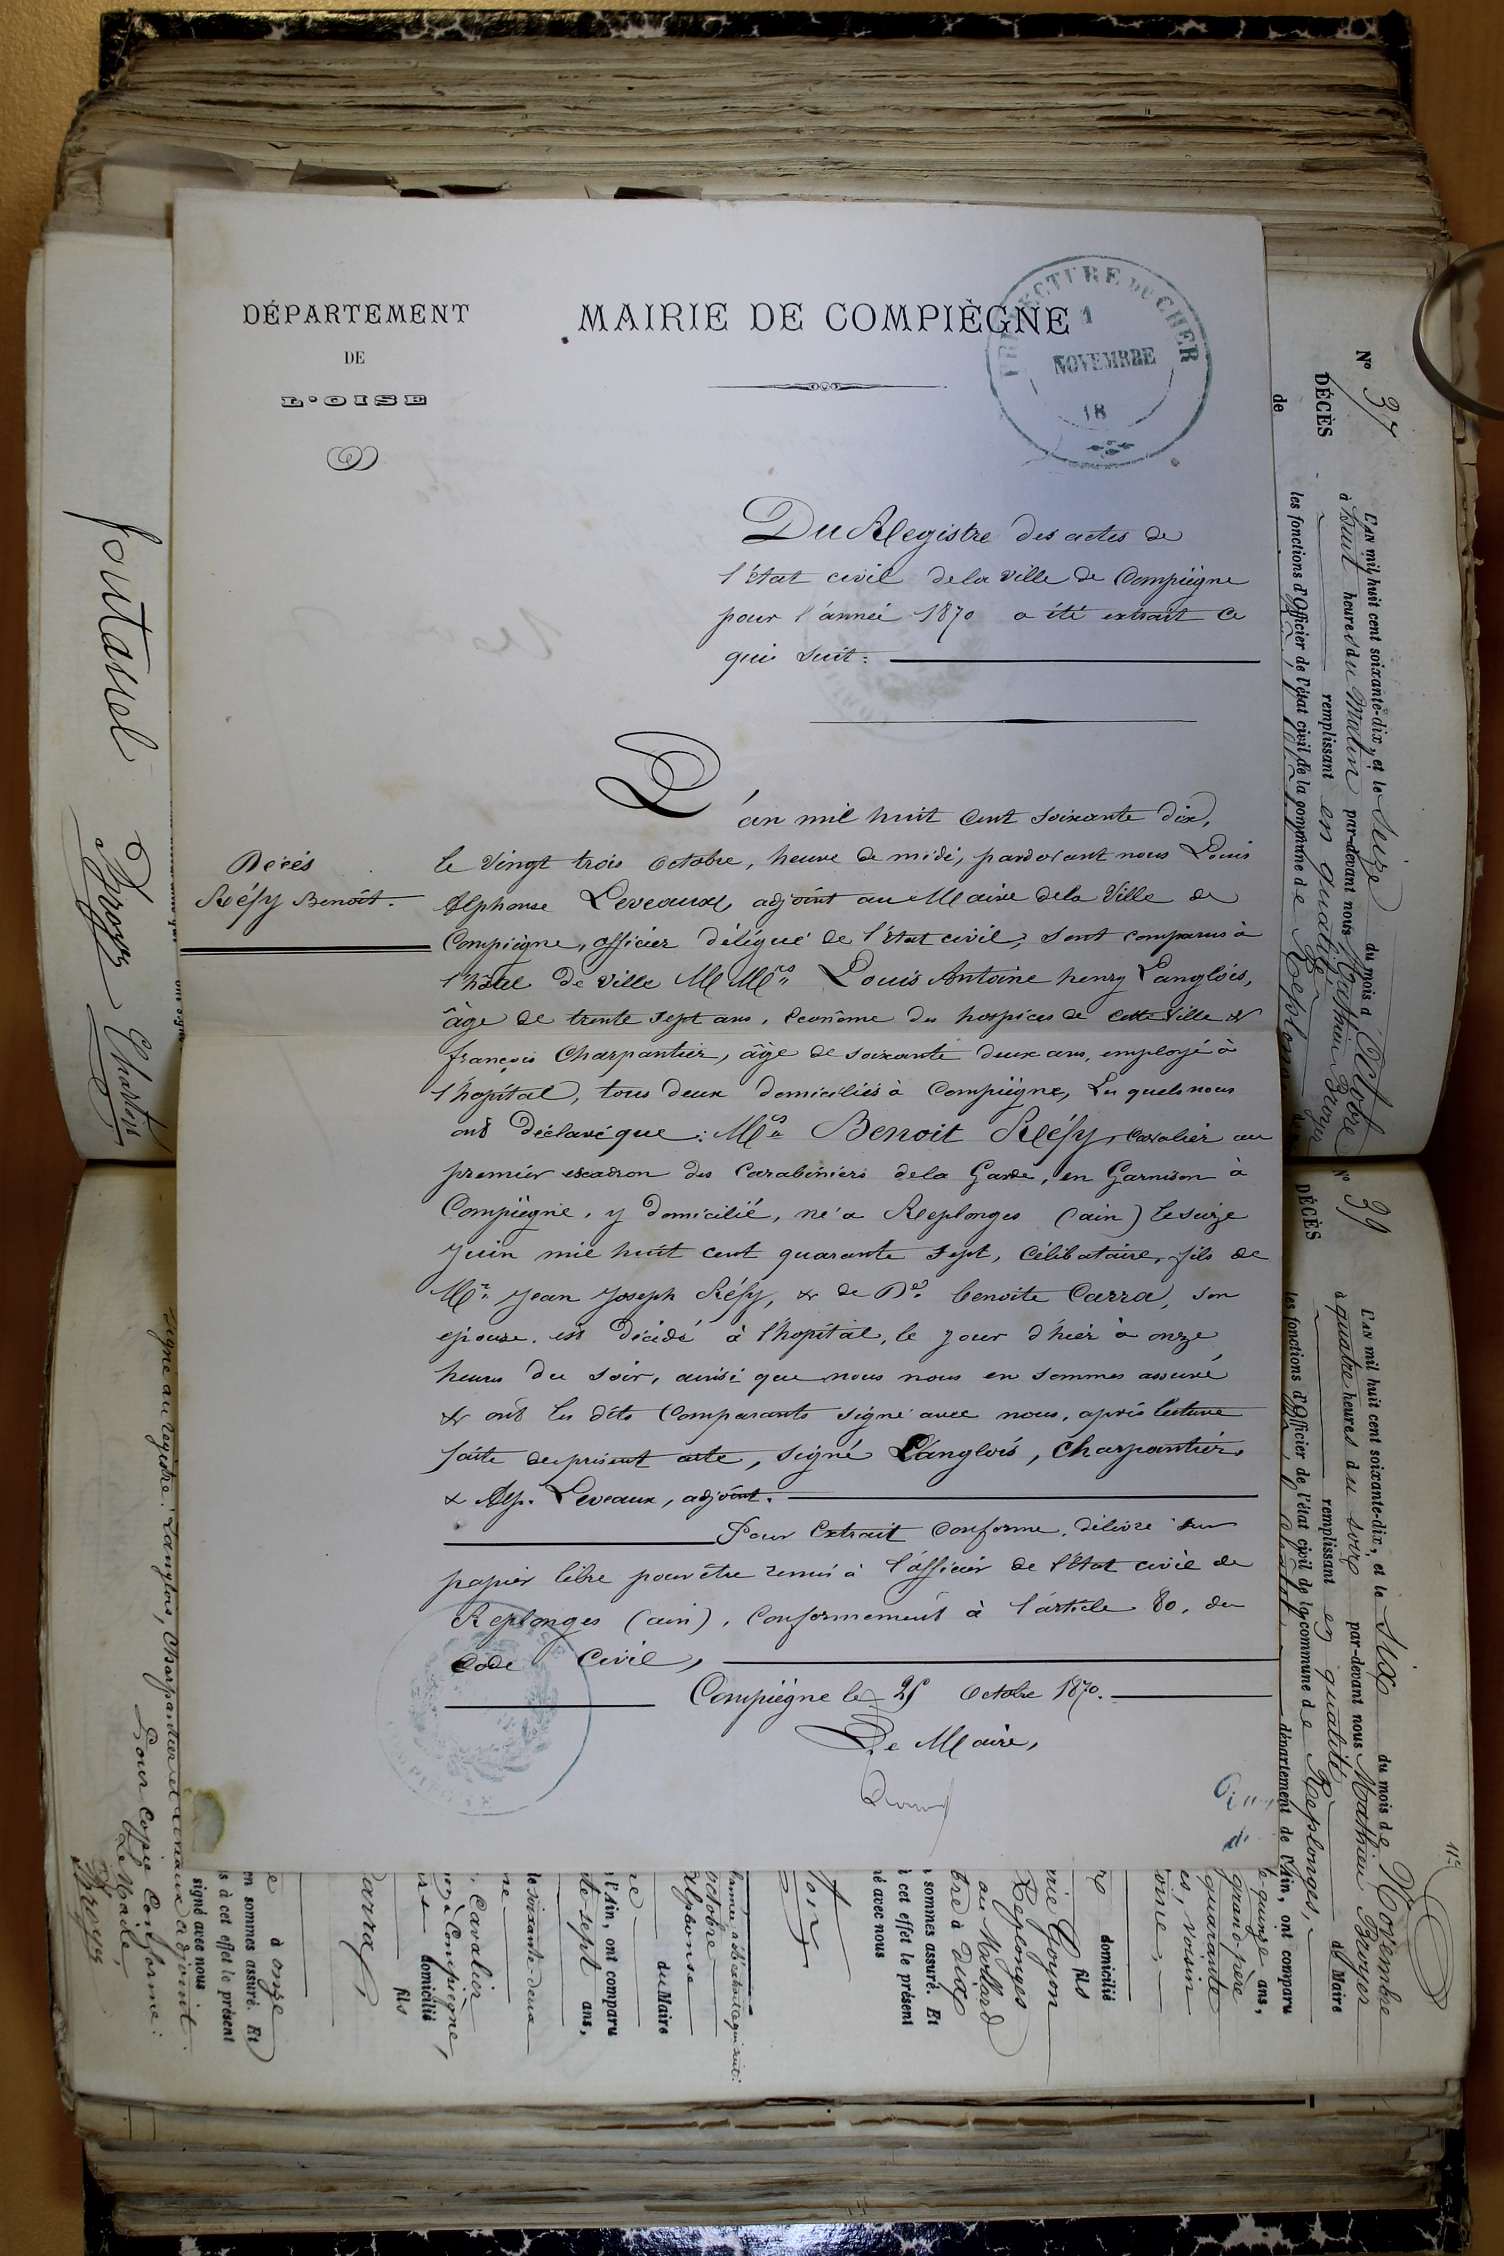 DÉPARTEMENT
DE
L'OISE
MAIRIE DE COMPIÈGNE
PRÉFECTURE DU CHER
1
NOVEMBRE
18
Du Registre des actes de
l'état civil de la ville de Compiègne
pour l'année 1870 a été extrait ce
qui suit :
L'an mil huit cent soixante dix,
Décés
Réfy Benoît.
le vingt trois octobre, heure de midi, pardevant nous Louis
Alphonse Leveaux, adjoint au Maire de la Ville de
Compiègne, officier délégué de l'état civil, sont comparus à
l'hôtel de ville MMrs Louis Antoine henry Langlois,
âgé de trente sept ans, économe des hospices de cette ville &
françois Charpantier, âgé de soixante deux ans, employé à
l'hopital, tous deux domiciliés à Compiègne, Les quels nous
ont déclaré que : Mr Benoit Réfy, cavalier au
premier escadron des Carabiniers de la Garde, en Garnison à
Compiègne, y domicilié, né à Replonges (ain) le seize
juin mil huit cent quarante sept, Célibataire, fils de
Mr Jean Joseph Réfy, & de De benoite Carra, son
épouse. est décédé à l'hopital, le jour d'hier à onze
heures du soir, ainsi que nous nous en sommes assuré
& ont les dits Comparants signé avec nous, après lecture
faite du présent acte, signé Langlois, Charpantier,
& Alp. Leveaux, adjoint.
Pour Extrait Conforme, délivré sur
papier libre pour être remis à l'officier de l'état civil de
Replonges (ain), Conformément à l'article 80, du
Code Civil,
Compiègne le 25 Octobre 1870.
Le Maire,
fontanel
Broyer
Charton
No 37
DÉCÈS
de
L'AN mil huit cent soixante-dix, et le seize du mois d'Octobre
à huit heures du matin par-devant nous Mathieu Broyer
remplissant en qualité
les fonctions d'Officier de l'état civil de la commune de Replonges
No 39
DÉCÈS
L'AN mil huit cent soixante-dix, et le six du mois de Novembre
à quatre heures du soir par-devant nous Mathieu Broyer
remplissant en qualité de Maire
les fonctions d'Officier de l'état civil de la commune de Replonges,
département de l'Ain, ont comparu
quinze ans,
grand-père
quarante
es, voisin
domicilié
fils
Goyon
Replonges
au Mollard
sommes assuré. Et
à cet effet le présent
né avec nous
octobre
Alphonse
du Maire
l'Ain, ont comparu
te-sept ans,
de soixante-deux
Cavalier
Compiègne,
domicilié
fils
Carra,
à onze
en sommes assuré. Et
s à cet effet le présent
signé avec nous
signé au registre : Langlois, Charpantier et Leveaux adjoint.
Pour Copie Conforme :
Le Maire,
Broyer